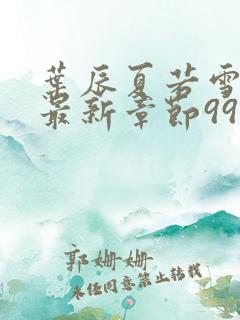 葉辰夏若雪
最新章節99
郭姗姗
未经同意禁止转载